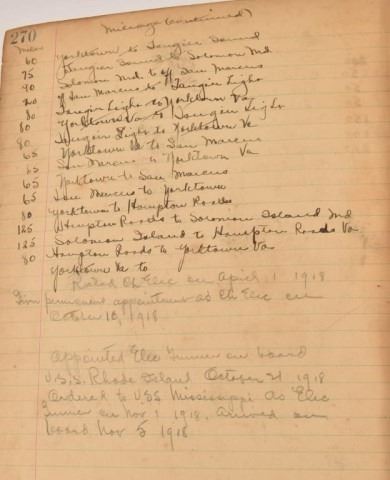 270
Mileage (continued)
Miles
60 Yorktown to Tangier Sound
75 Tangier Sound to Solomon Md
90 Solomon Md. to off San Marcus
San Marcus to Tangier Light
80 Tangier Light to Yorktown Va
80 Yorktown Va to Tangier Light
80 Tangier Light to Yorktown Va
65 Yorktown Va to San Marcus
65 San Marcus to Yorktown Va
65 Yorktown to San Marcus
65 San Marcus to Yorktown
80 Yorktown to Hampton Roads
125 Hampton Roads to Solomon Island Md
125 Solomon Island to Hampton Roads Va
80 Hampton Roads to Yorktown Va
Yorktown Va to
Rated Ch Elec on April 1 1918
permanent appointment as Ch Elec on
October 16, 1918
Appointed Elec Gunner on board
U.S.S. Rhode Island October 21 1918
Ordered to USS Mississippi as Elec
Gunner on Nov 1 1918. Arrived on
board Nov 5 1918